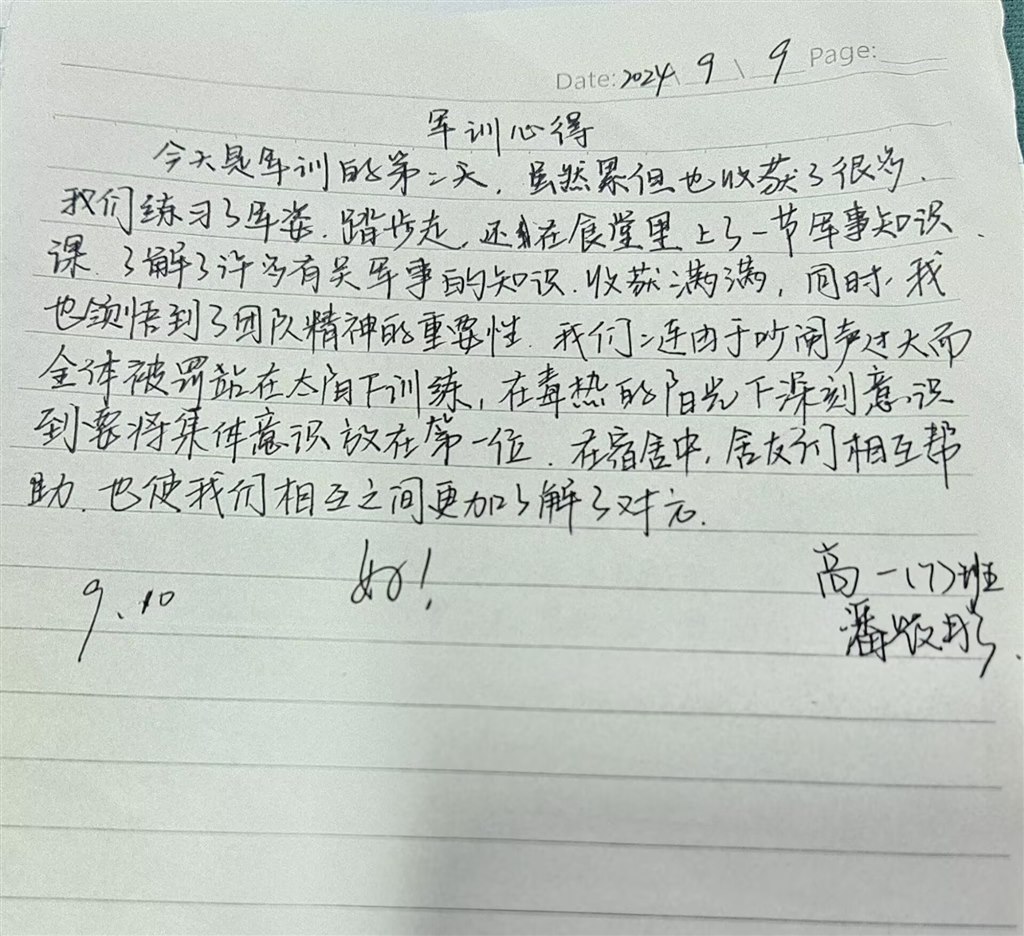 Date: 2024 \ 9 \ 9 Page:
军训心得
今天是军训的第二天，虽然累但也收获了很多.
我们练习了军姿.踏步走,还在食堂里上了一节军事知识
课.了解了许多有关军事的知识.收获满满,同时,我
也领悟到了团队精神的重要性.我们二连由于吵闹声过大而
全体被罚站在太阳下训练,在毒热的阳光下深刻意识
到要将集体意识放在第一位.在宿舍中,舍友们相互帮
助.也使我们相互之间更加了解了对方.
高一(7)班
潘
9.10
好!